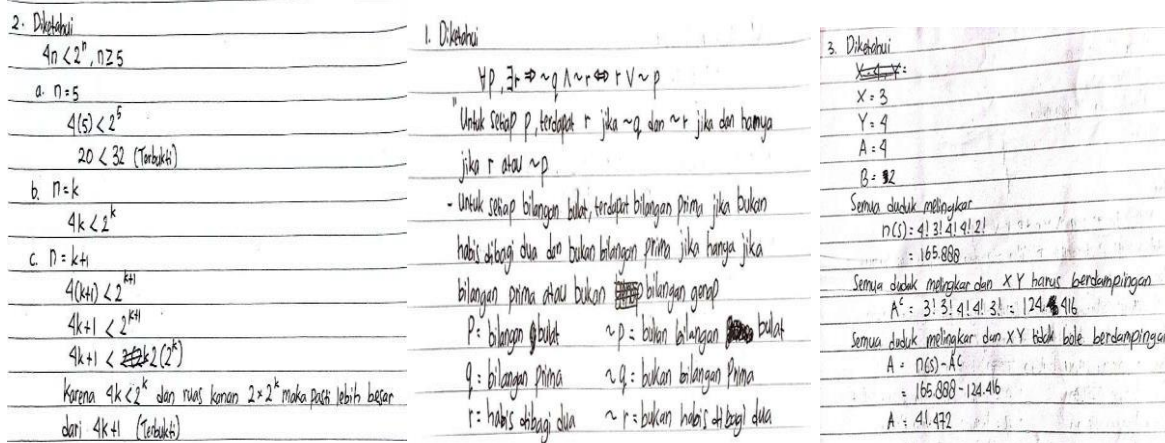 2. Diketahui
4n < 2ⁿ, n ≥ 5
a. n = 5
4(5) < 2⁵
20 < 32 (Terbukti)
b. n = k
4k < 2ᵏ
c. n = k+1
4(k+1) < 2ᵏ⁺¹
4k+1 < 2ᵏ⁺¹
4k+1 < 2(2ᵏ)
Karena 4k < 2ᵏ dan ruas kanan 2×2ᵏ maka pasti lebih besar
dari 4k+1 (Terbukti)
1. Diketahui
∀p, ∃r ⇒ ~q ∧ ~r ⇔ r ∨ ~p
"Untuk setiap p, terdapat r jika ~q dan ~r jika dan hanya
jika r atau ~p
- Untuk setiap bilangan bulat, terdapat bilangan prima jika bukan
habis dibagi dua dan bukan bilangan prima jika hanya jika
bilangan prima atau bukan bilangan genap
P = bilangan bulat ~p = bukan bilangan bulat
q = bilangan Prima ~q = bukan bilangan Prima
r = habis dibagi dua ~r = bukan habis dibagi dua
3. Diketahui
X = 3
Y = 4
A = 4
B = 2
Semua duduk melingkar
n(s) = 4! 3! 4! 4! 2!
= 165.888
Semua duduk melingkar dan X Y harus berdampingan
Aᶜ = 3! 3! 4! 4! 3! = 124.416
Semua duduk melingkar dan X Y tidak bole berdampingan
A = n(s) - Aᶜ
= 165.888 - 124.416
A = 41.472